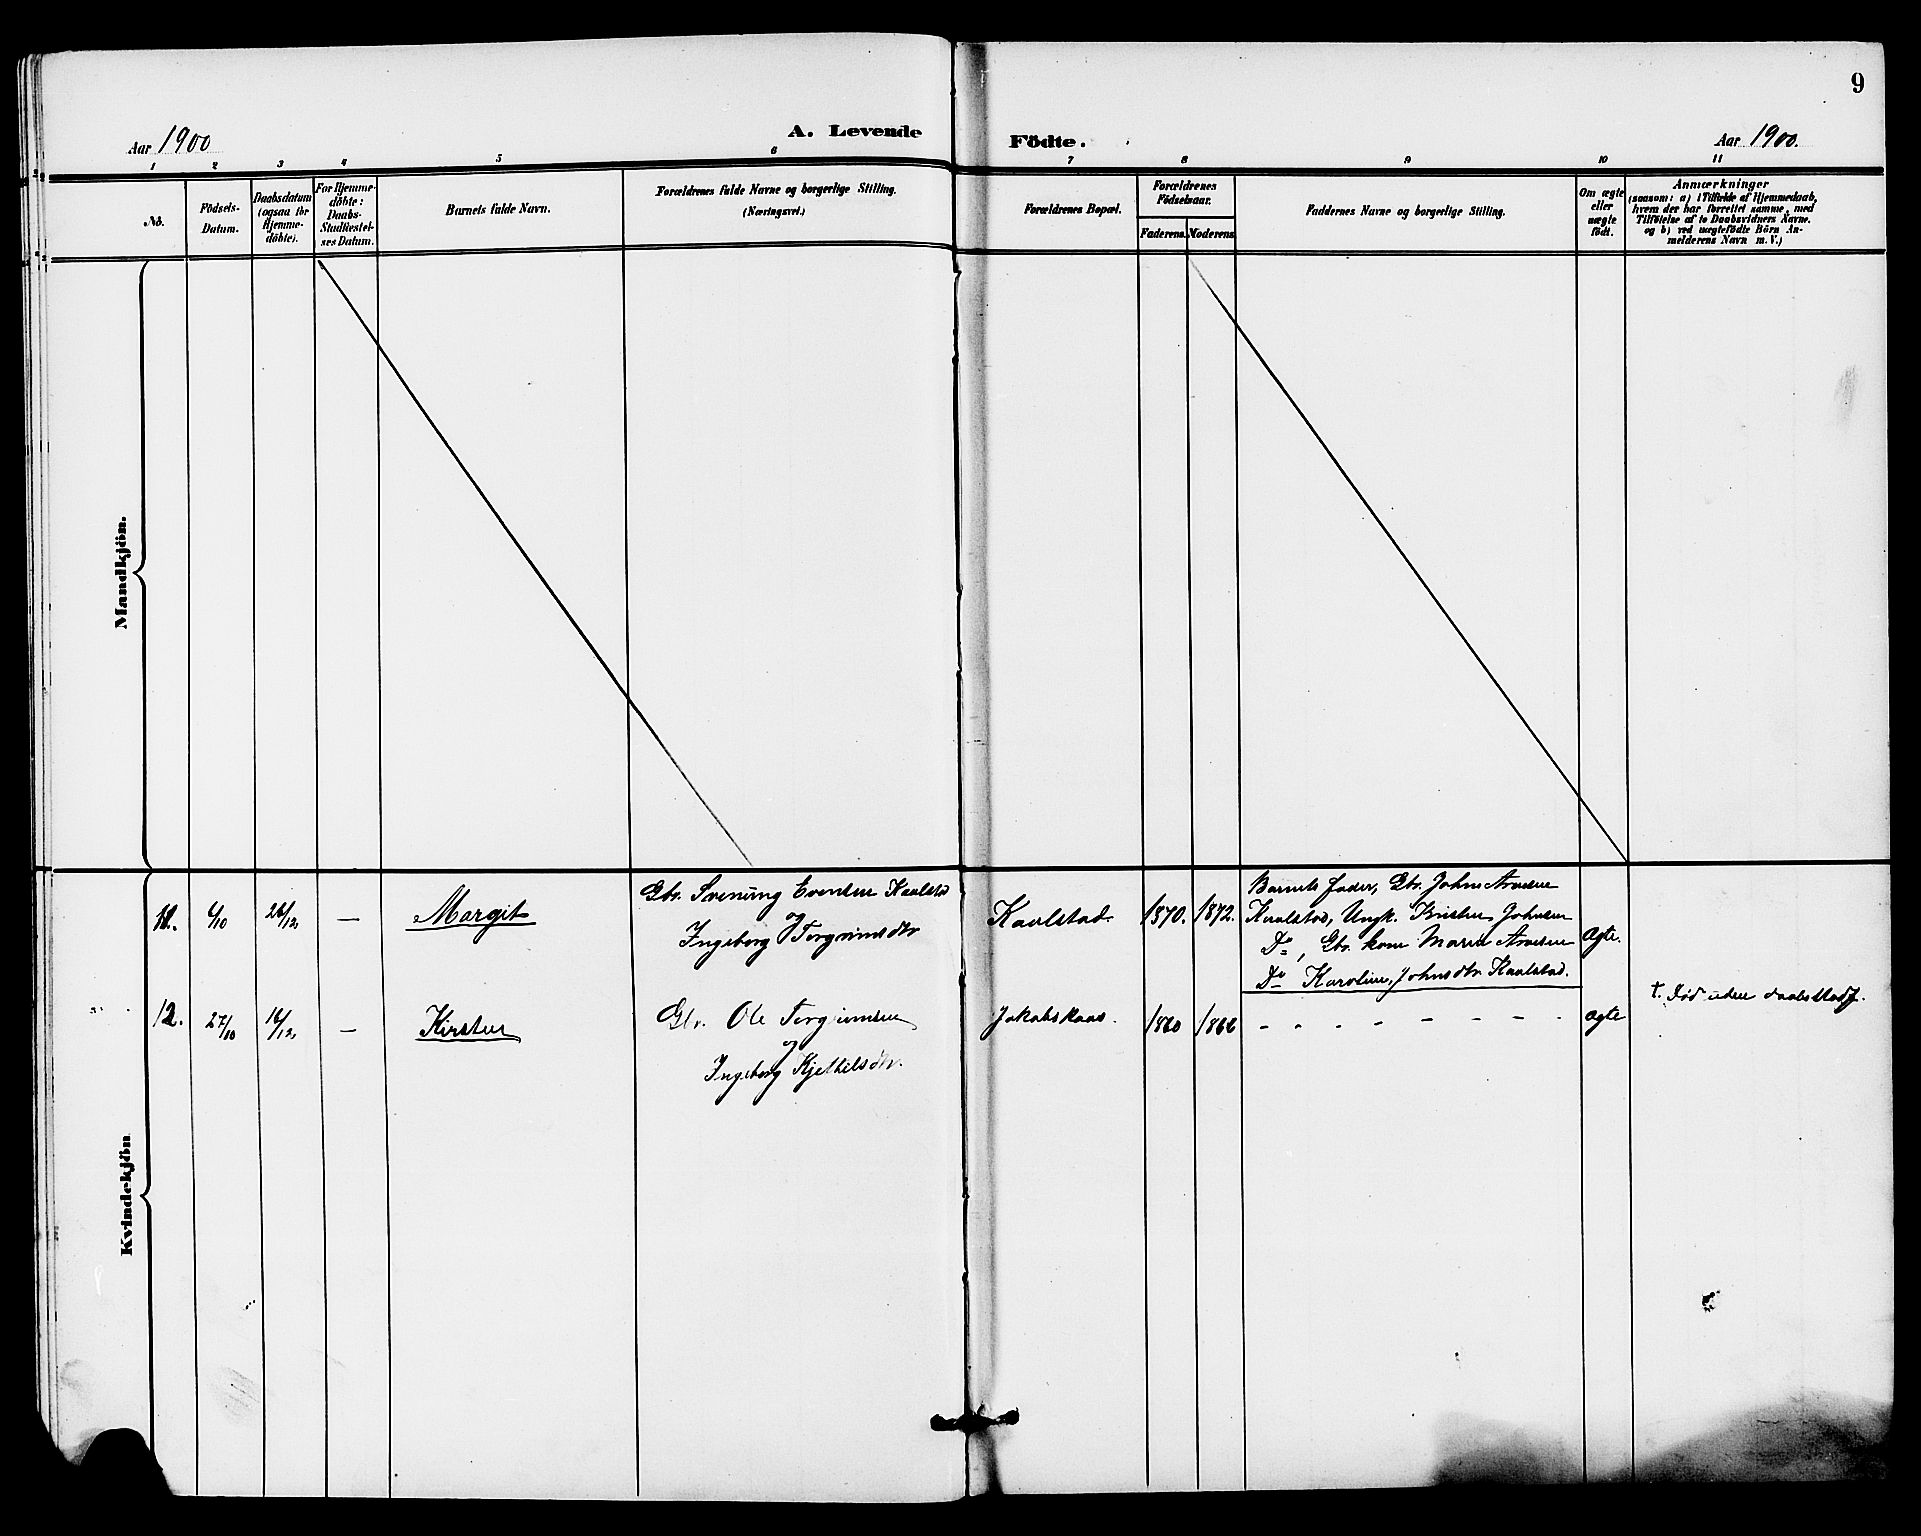 9
Aar 1900
A. Levende
Födte.
Aar 1900.
1 2 3 4 5 6 7 8 9 10 11
No.
Födsels-
Datum.
Daabsdatum
(ogsaa for
Hjemme-
döbte).
For Hjemme-
döbte:
Daabs-
Stadfæstel-
ses Datum.
Barnets fulde Navn.
Forældrenes fulde Navne og borgerlige Stilling.
(Næringsvei.)
Forældrenes Bopæl.
Forældrenes
Födselsaar.
Faderens. Moderens.
Faddernes Navne og borgerlige Stilling.
Om ægte
eller
uægte
födt.
Anmærkninger
(saasom: a) i Tilfælde af Hjemmedaab,
hvem der har forrettet samme, med
Tilföielse af to Daabsvidners Navne.
og b) ved uægtefödte Börn An-
melderens Navn m. V.)
Mandkjön.
Kvindekjön
11. 6/10 26/12 — Margit
Gbr. Svenung Evensen Kaalstad
og
Ingeborg Torgrimsdtr
Kaalstad. 1870. 1872.
Barnets fader, Gbr. John Arvesen
Kaalstad, Ungk. Kristen Johnsen
Do, Gbr. kone Maria Arvesen
Do Karoline Johnsdtr Kaalstad.
Ægte.
12. 27/10 16/12 — Kirsten
Gbr. Ole Torgrimsen
og
Ingeborg Kjethilsdtr.
Jakobskaas. 1860 1866 - - - - - - - -
Ægte
†. Død uden daabsstadf.